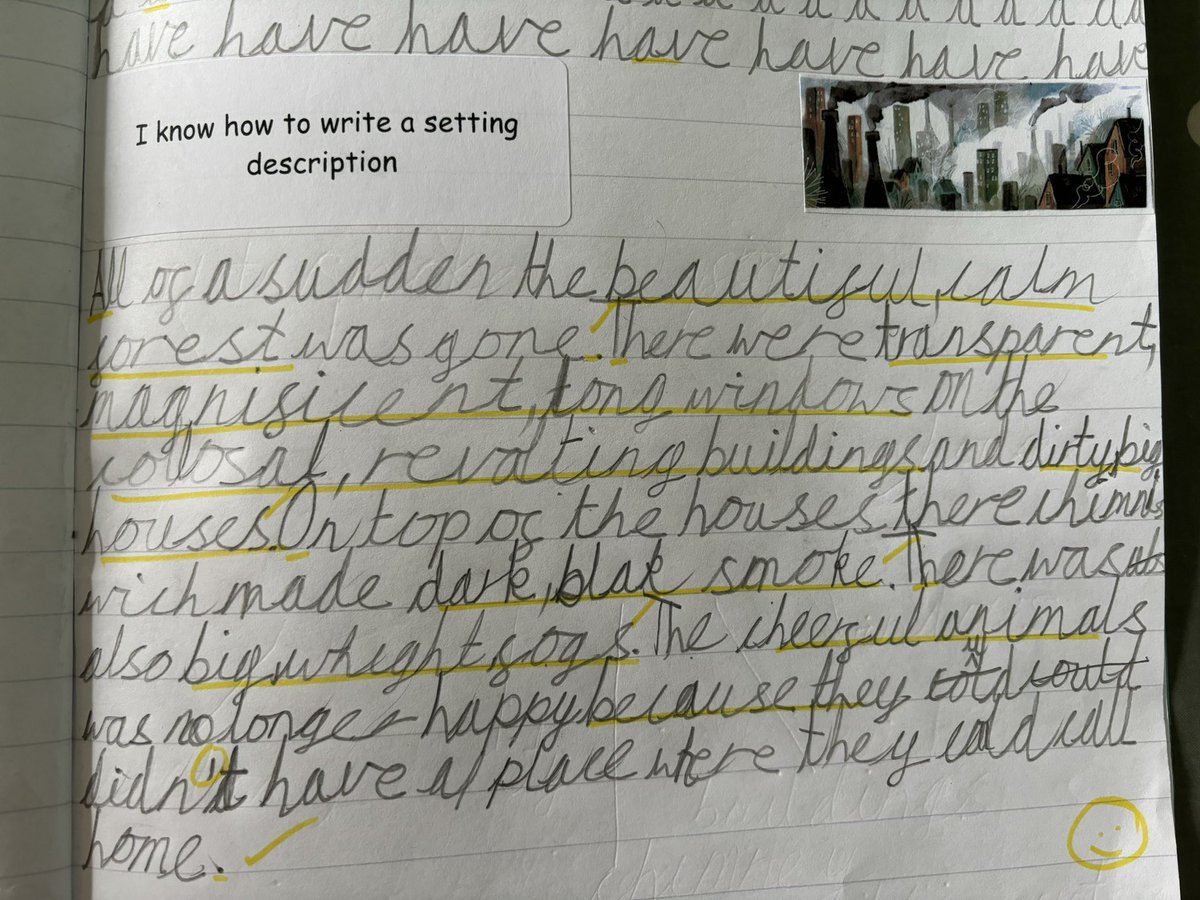 have have have have have have have
I know how to write a setting
description
All of a sudden the beautiful, calm
forest was gone. There were transparent,
magnificent, long windows on the
colosal, revolting buildings and dirty, big
houses. On top of the houses there chimnis
wich made dark, blak smoke. There was
also big, whight fogs. The cheerful animals
was no longer happy because they
didn't have a place where they could call
home.